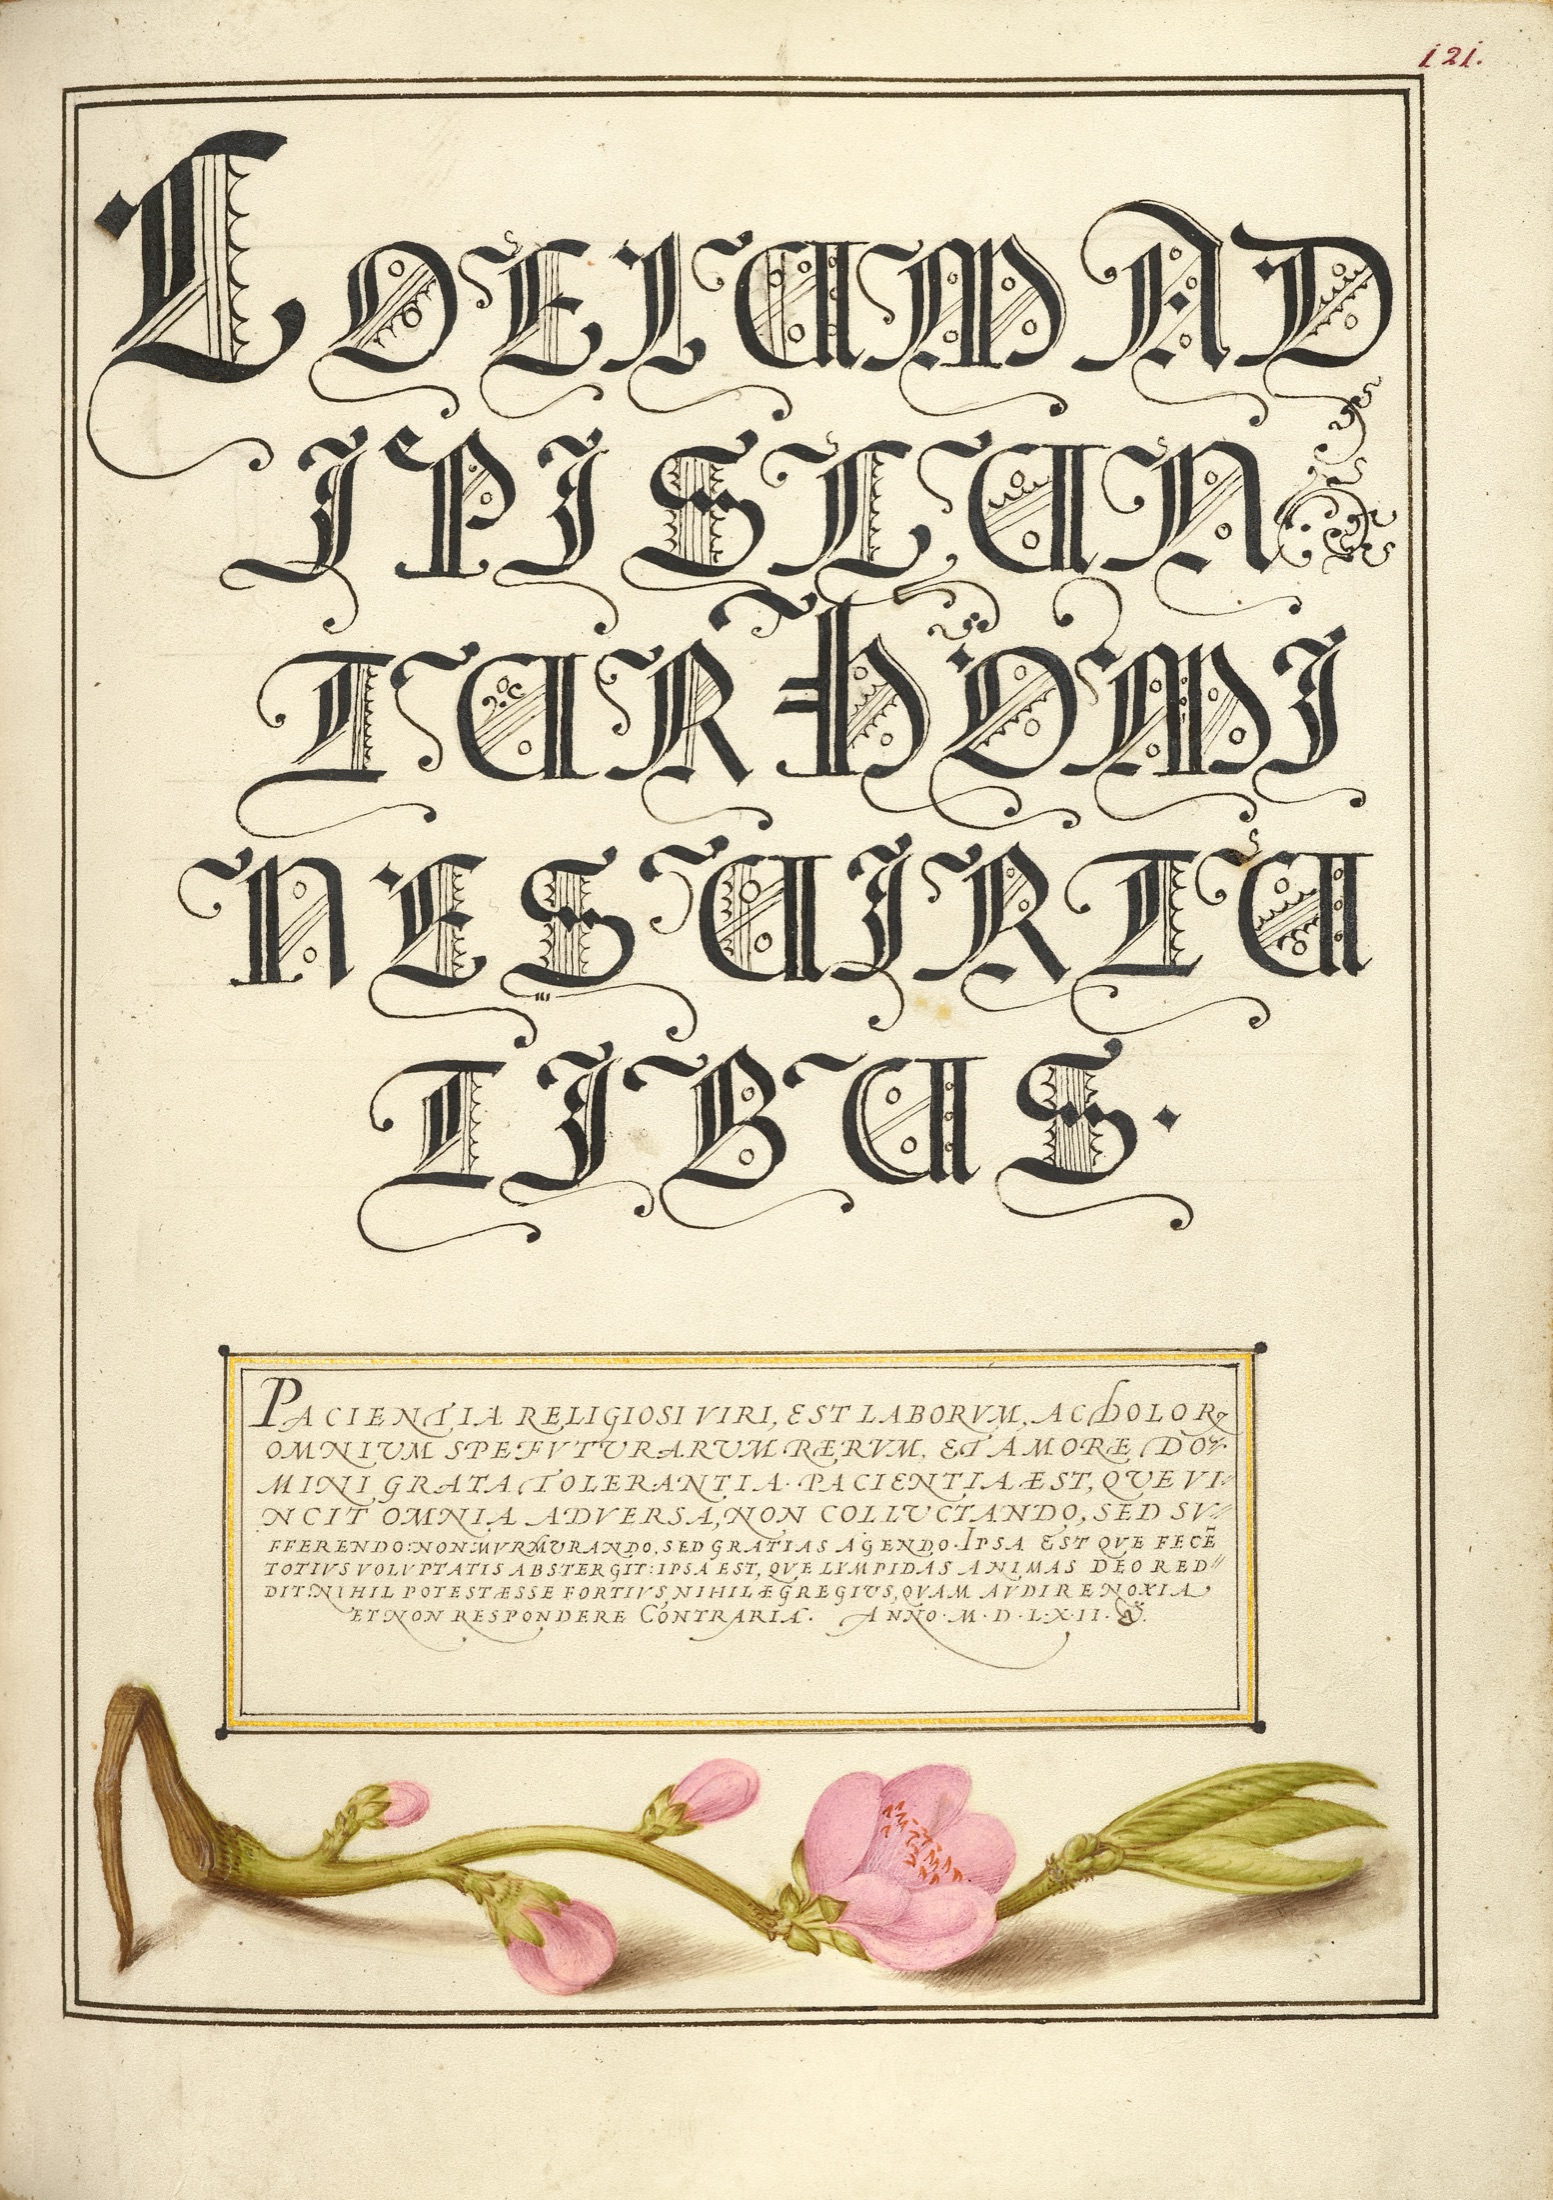 121.
COELUM AD
IPISCUN
TUR HOMI
NES UIRTU
TIBUS.
PACIENTIA RELIGIOSI VIRI, EST LABORVM, AC DOLORꝝ
OMNIUM SPE FVTURARUM RÆRVM, ET AMORE DO⸗
MINI GRATA TOLERANTIA. PACIENTIA ÆST, QVE VI⸗
NCIT OMNIA ADVERSA, NON COLLUCTANDO, SED SV⸗
FFERENDO: NON MVRMURANDO, SED GRATIAS AGENDO. IPSA EST QVE FECĒ
TOTIVS VOLVPTATIS ABSTERGIT: IPSA EST, QVE LIMPIDAS ANIMAS DEO RED⸗
DIT: NIHIL POTEST ÆSSE FORTIVS, NIHIL ÆGREGIUS, QVAM AVDIRE NOXIA
ET NON RESPONDERE CONTRARIA. ANNO. M. D. L. X. II.